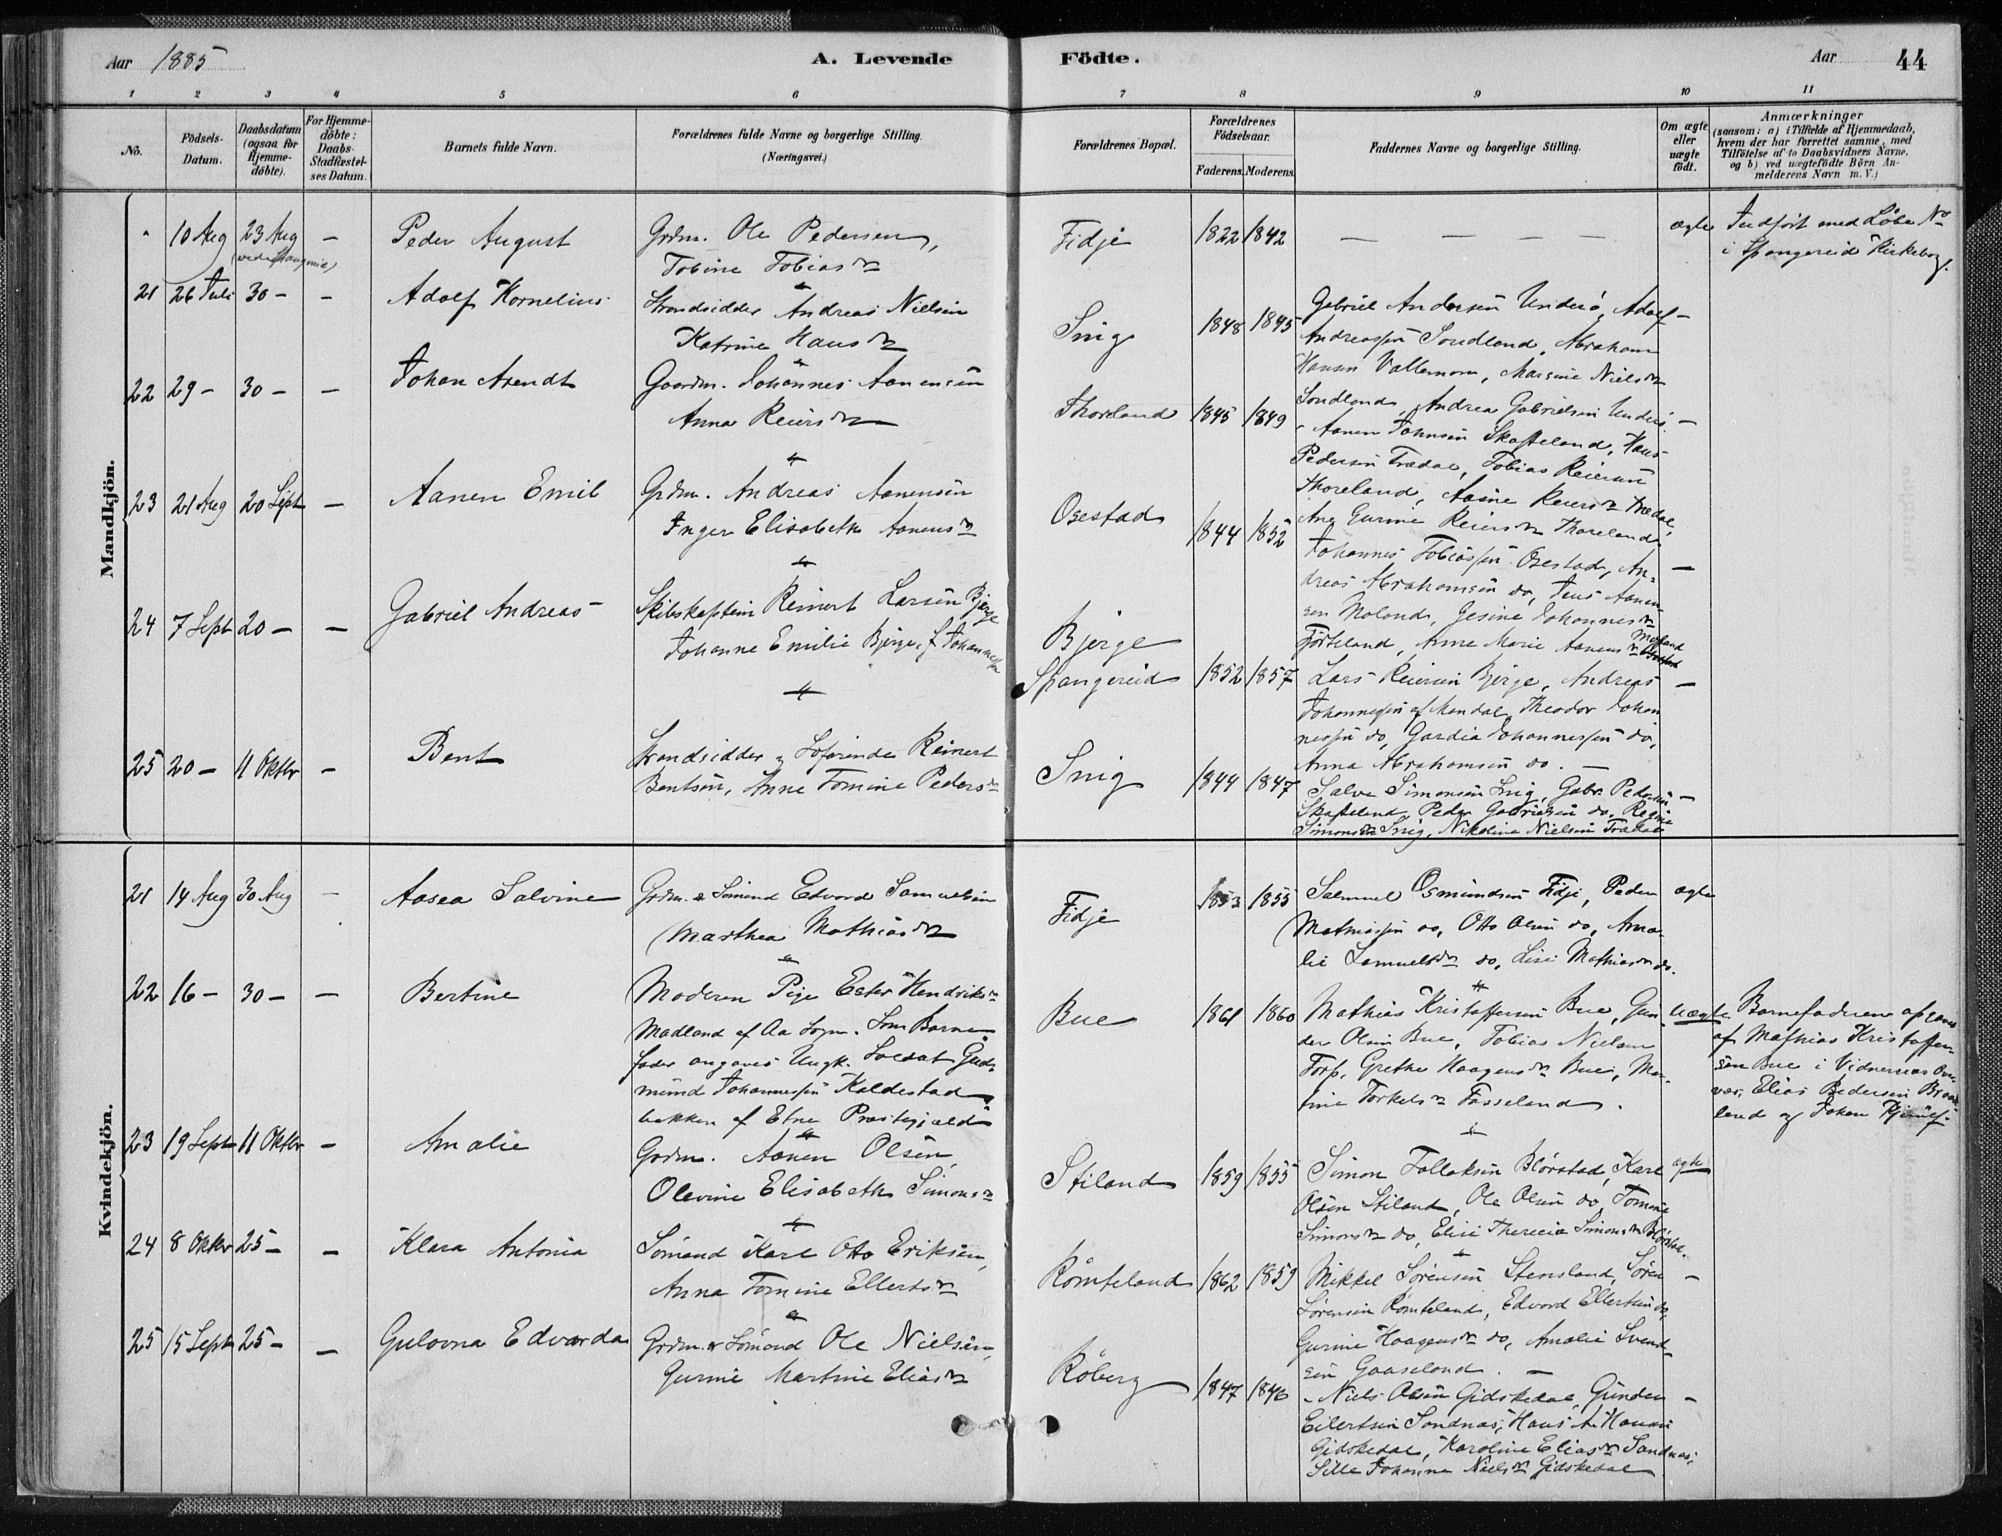 Aar 1885
A. Levende
Födte.
Aar
44
1 2 3 4 5 6 7 8 9 10 11
No.
Födsels-
Datum.
Daabsdatum
(ogsaa for
Hjemme-
döbte).
For Hjemme-
döbte:
Daabs-
Stadfæstel-
ses Datum.
Barnets fulde Navn.
Forældrenes fulde Navne og borgerlige Stilling.
(Næringsvei.)
Forældrenes Bopæl.
Forældrenes
Födselsaar.
Faderens. Moderens.
Faddernes Navne og borgerlige Stilling.
Om ægte
eller
uægte
født.
Anmærkninger
(saasom: a) i Tilfælde af Hjemmedaab,
hvem der har forrettet samme, med
Tilföielse af to Daabsvidners Navne,
og b) ved uægtefödte Börn An-
melderens Navn m.V.)
Mandkjön.
10 Aug 23 Aug – Peder August Grdm. Ole Pedersen,
Tobine Tobiasdr
Fidje 1822 1842 – – – – ægte Indført med Löbe No
i Spangereid Kirkebog.
21 26 Juli 30 – – Adolf Kornelius Strandsidder Andreas Nielsen
Katrine Hansdr
Snig 1848 1845 Gabriel Andersen Underö, Adolf –
Andreassen Sondland, Abraham
Hansen Vallemon, Maren Nielsdr
Sondland, Andrea Gabrielsen Underö.
22 29 – 30 – – Johan Arendt Gaardm. Johannes Aanensen
Anna Reiersdr
Thoreland 1845 1849 –
Aanen Johnsen Skofteland, Hans
Pedersen Trædal, Tobias Reiersen
Thoreland, Aasne Reiersdr Trædal,
Ane Gurine Reiersdr Thoreland.
23 21 Aug 20 Sept – Aanen Emil Grdm. Andreas Aanensen
Inger Elisabeth Aanensdr
Osestad 1844 1852 –
Johannes Tobiassen Osestad, An-
dreas Abrahamsen do, Jens Aanen-
sen Moland, Gesine Johannesdr
Fjörteland, Anne Marie Aanensdr Moland
24 7 Sept 20 – – Gabriel Andreas Skibskaptein Reinert Larsen Bjerge
Johanne Emilie Bjerge, f. Johannessen
Bjerge
Spangereid 1852 1857 Lars Reiersen Bjerge, Andreas –
Johannessen af Mandal, Theodor Johan
nessen do, Gardia Johannessen do,
Anna Abrahamsen do. –
25 20 – 11 Oktbr – Bent Strandsidder & Söfarende Reinert
Bentsen, Anne Tomine Pedersdr
Snig 1844 1847 Salve Simonsen Snig, Gabr. Pedersen –
Skofteland, Peder Gabrielsen do, Regine
Simonsdr Snig, Nikoline Nielsen Trædal
Kvindekjön.
21 14 Aug 30 Aug – Aasea Salvine Grdm. & Sömand Edvard Samuelsen
Marthea Mathiasdr
Fidje 1853 1855 Salmuel Osmundsen Fidje, Peder ægte
Mathiassen do, Otto Olsen do, Ama-
lie Samuelsdr do, Lise Mathiasdr do.
22 16 – 30 – – Bertine Moderen Pige Ester Hendriksdr
Madland af Aa Sogn. Som Barne-
fader angaves Ungk. Soldat Gud-
mund Johannessen Kaldestad
bakken af Etne Præstegjæld
Bue 1861 1860 Mathias Kristoffersen Bue, Gun- uægte
der Olsen Bue, Tobias Nielsen
Torp, Grethe Haagensdr Bue, Mar-
tine Torkelsdr Fasseland.
Barnefaderen opgives
af Mathias Kristoffer-
sen Bue i Vidnernes Over-
vær, Elias Pedersen
land og Johan
23 19 Sept 11 Oktbr – Amalie Grdm. Aanen Olsen
Olevine Elisabeth Simonsdr
Stiland 1859 1855 Simon Tollaksen Blörstad, Karl ægte
Olsen Stiland, Ole Olsen do, Tomine
Simonsdr do, Elise Therecia Simonsdr Blörstad.
24 8 Oktbr 25 – – Klara Antonia Sömand Karl Otto Eriksen,
Anna Tomine Ellertsdr
Römteland 1862 1859 Mikkel Sörensen Stensland, Sören –
Sörensen Römteland, Edvard Ellertsen do,
Gurine Haagensdr do, Amalie Svend-
sen Gaaseland. –
25 15 Sept 25 – – Gulovna Edvarda Grdm. & Sömand Ole Nielsen,
Gurine Martine Eliasdr
Röberg 1847 1846 Niels Olsen Gidskedal, Gunder –
Eilertsen Sandnas, Hans A. Hansen
Gidskedal, Karoline Eliasdr Sandnas,
Sille Johanna Nielsdr Gidskedal